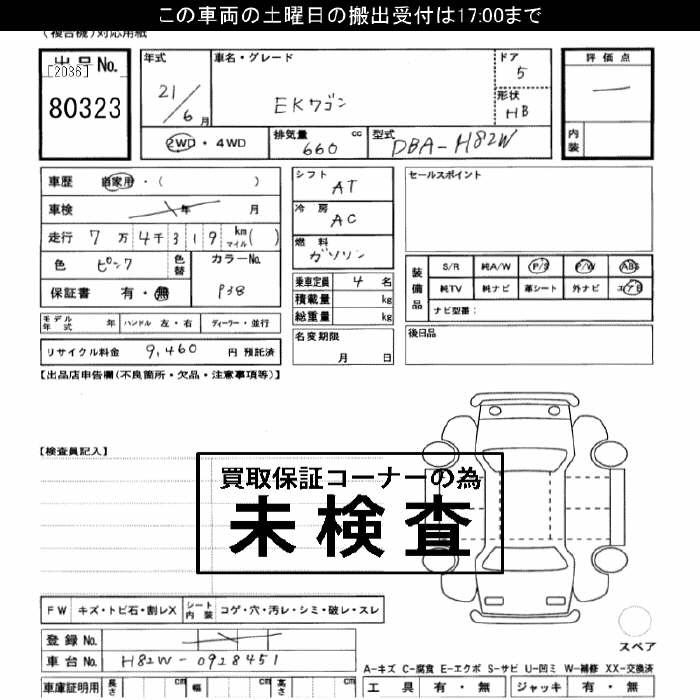 この車両の土曜日の搬出受付は17:00まで
(複合機)対応用紙
出品No.
[2036]
80323
年式
21/6月
車名・グレード
EKワゴン
ドア
5
形状
HB
評価点
―
内装
2WD・4WD
排気量 660 cc
型式 DBA-H82W
車歴 自家用・( )
車検 年 月
走行 7万4千319 km マイル( )
色 ピンク
色替
カラーNo.
P38
保証書 有・無
モデル年式 年 ハンドル 左・右 ディーラー・並行
リサイクル料金 9,460 円 預託済
シフト
AT
冷房
AC
燃料
ガソリン
乗車定員 4名
積載量 kg
総重量 kg
名変期限
月 日
セールスポイント
装備品
S/R 純A/W P/S P/W ABS
純TV 純ナビ 革シート 外ナビ エアB
ナビ型番:
後日品
【出品店申告欄(不良箇所・欠品・注意事項等)】
【検査員記入】
買取保証コーナーの為
未検査
FW キズ・トビ石・割レX
シート内装 コゲ・穴・汚レ・シミ・破レ・スレ
登録No.
車台No. H82W-0928451
車庫証明用 長さ cm 幅 cm 高さ cm
スペア
A-キズ C-腐食 E-エクボ S-サビ U-凹ミ W-補修 XX-交換済
工具 有・無 ジャッキ 有・無